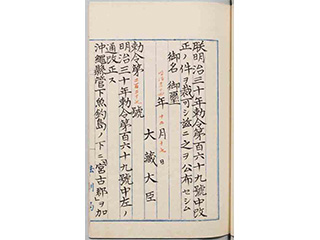 朕明治三十年勅令第百六十九號中改
正ノ件ヲ裁可シ茲ニ之ヲ公布セシム
御名 御璽
年 月
大藏大臣
勅令第 號
明治三十年勅令第百六十九號中左ノ
通改正ス
沖繩縣管下魚釣島ノ下ニ「宮古郡」ヲ加
法制局